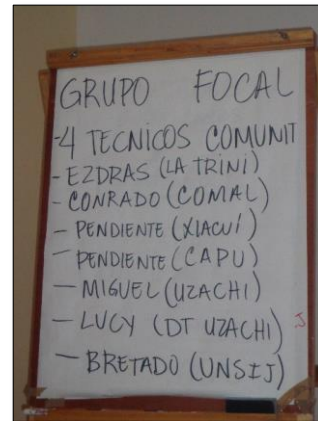 GRUPO FOCAL
-4 TECNICOS COMUNIT
- EZDRAS (LA TRINI)
- CONRADO (COMAL)
- PENDIENTE (XIACUÍ)
PENDIENTE (CAPU)
- MIGUEL (UZACHI)
- LUCY (DT UZACHI) J
- BRETADO (UNSIJ)